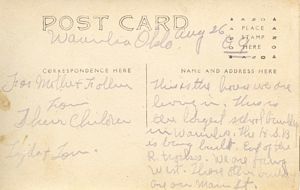 POST CARD
Waurika Okla. Aug 26
PLACE
STAMP
HERE
CORRESPONDENCE HERE
For Mother & 
from
Their Children
&
NAME AND ADDRESS HERE
This is the house we are
living in. This is
the largest school building
in Waurika. The H.S.B
is being built. East of the
R. tracks. We are facing
West. These other
are on Main St.